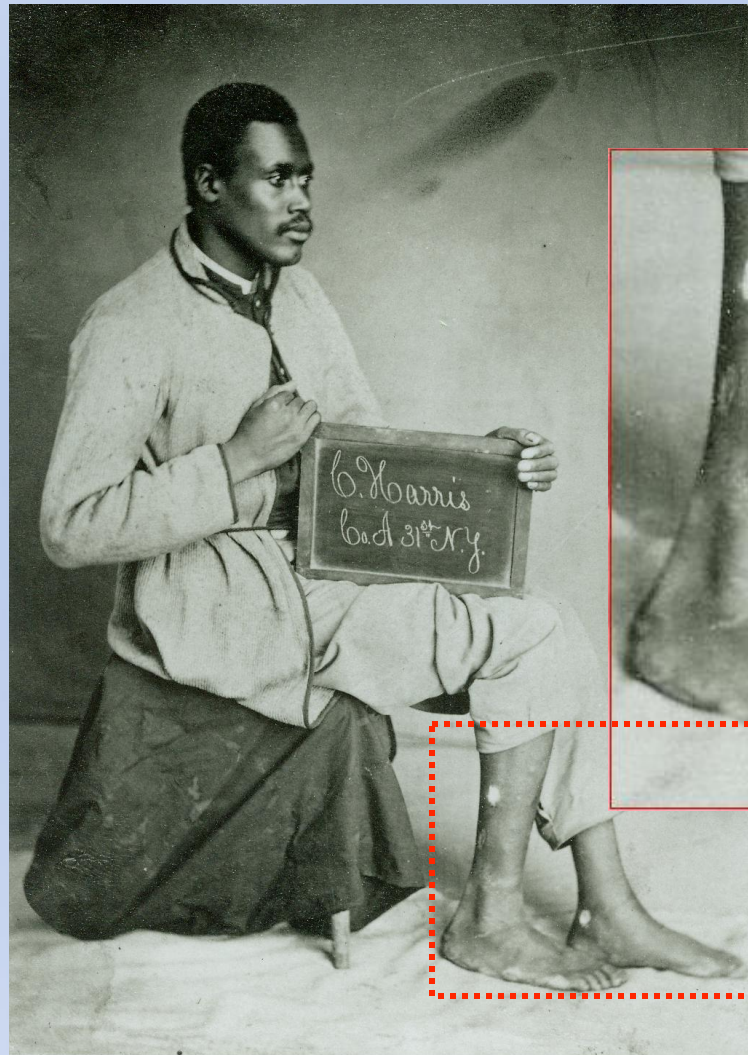 C. Harris
Co. A 31st N.Y.